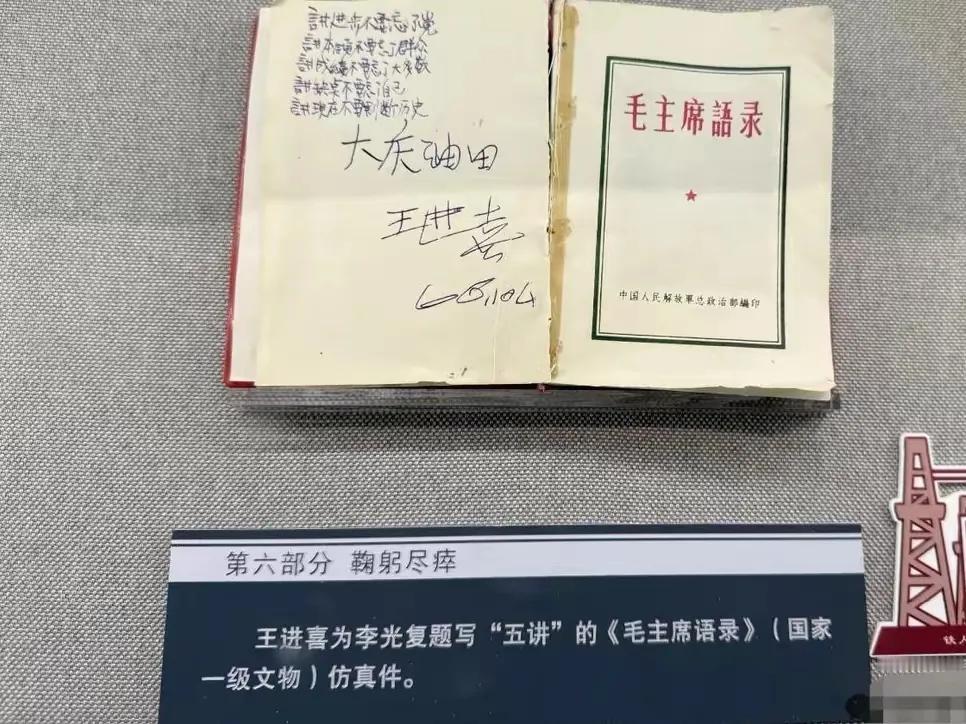 讲进步不要忘了党
讲本领不要忘了群众
讲成绩不要忘了大多数
讲缺点不要忘自己
讲现在不要割断历史
大庆油田
王进喜
毛主席語录
中国人民解放軍总政治部編印
第六部分 鞠躬尽瘁
王进喜为李光复题写“五讲”的《毛主席语录》(国家
一级文物)仿真件。
铁人